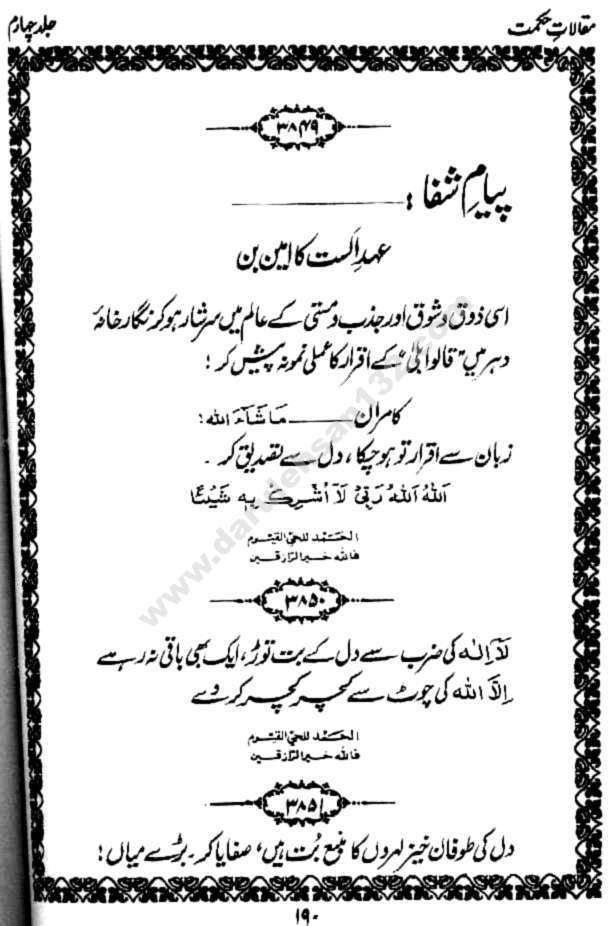 مقالاتِ حکمت
جلد چہارم
۳۸۴۹
پیامِ شفا :
عہدِ اَلست کا امین بن
اسی ذوق و شوق اور جذب و مستی کے عالم میں سرشار ہو کر نگار خانۂ
دہر میں "قالوا بلیٰ" کے اقرار کا عملی نمونہ پیش کر !
کامران ــــــ مَا شَآءَ اللہ !
زبان سے اقرار تو ہو چکا ، دل سے تصدیق کر ۔
اَللهُ اَللهُ رَبِّیْ لَآ اُشْرِكُ بِهٖ شَیْئًا
الحَمد للحیّ القیّوم
فاللہ خیر الرازقین
۳۸۵۰
لَآ اِلٰه کی ضرب سے دل کے بت توڑ، ایک بھی باقی نہ رہے
اِلَّا اللہ کی چوٹ سے کچر کچر کر دے
الحَمد للحیّ القیّوم
فاللہ خیر الرازقین
۳۸۵۱
دل کی طوفان خیز لہروں کا منبع بُت ہیں، صفایا کر ۔ بڑے میاں !
۱۹۰
www.darulehsan132.com